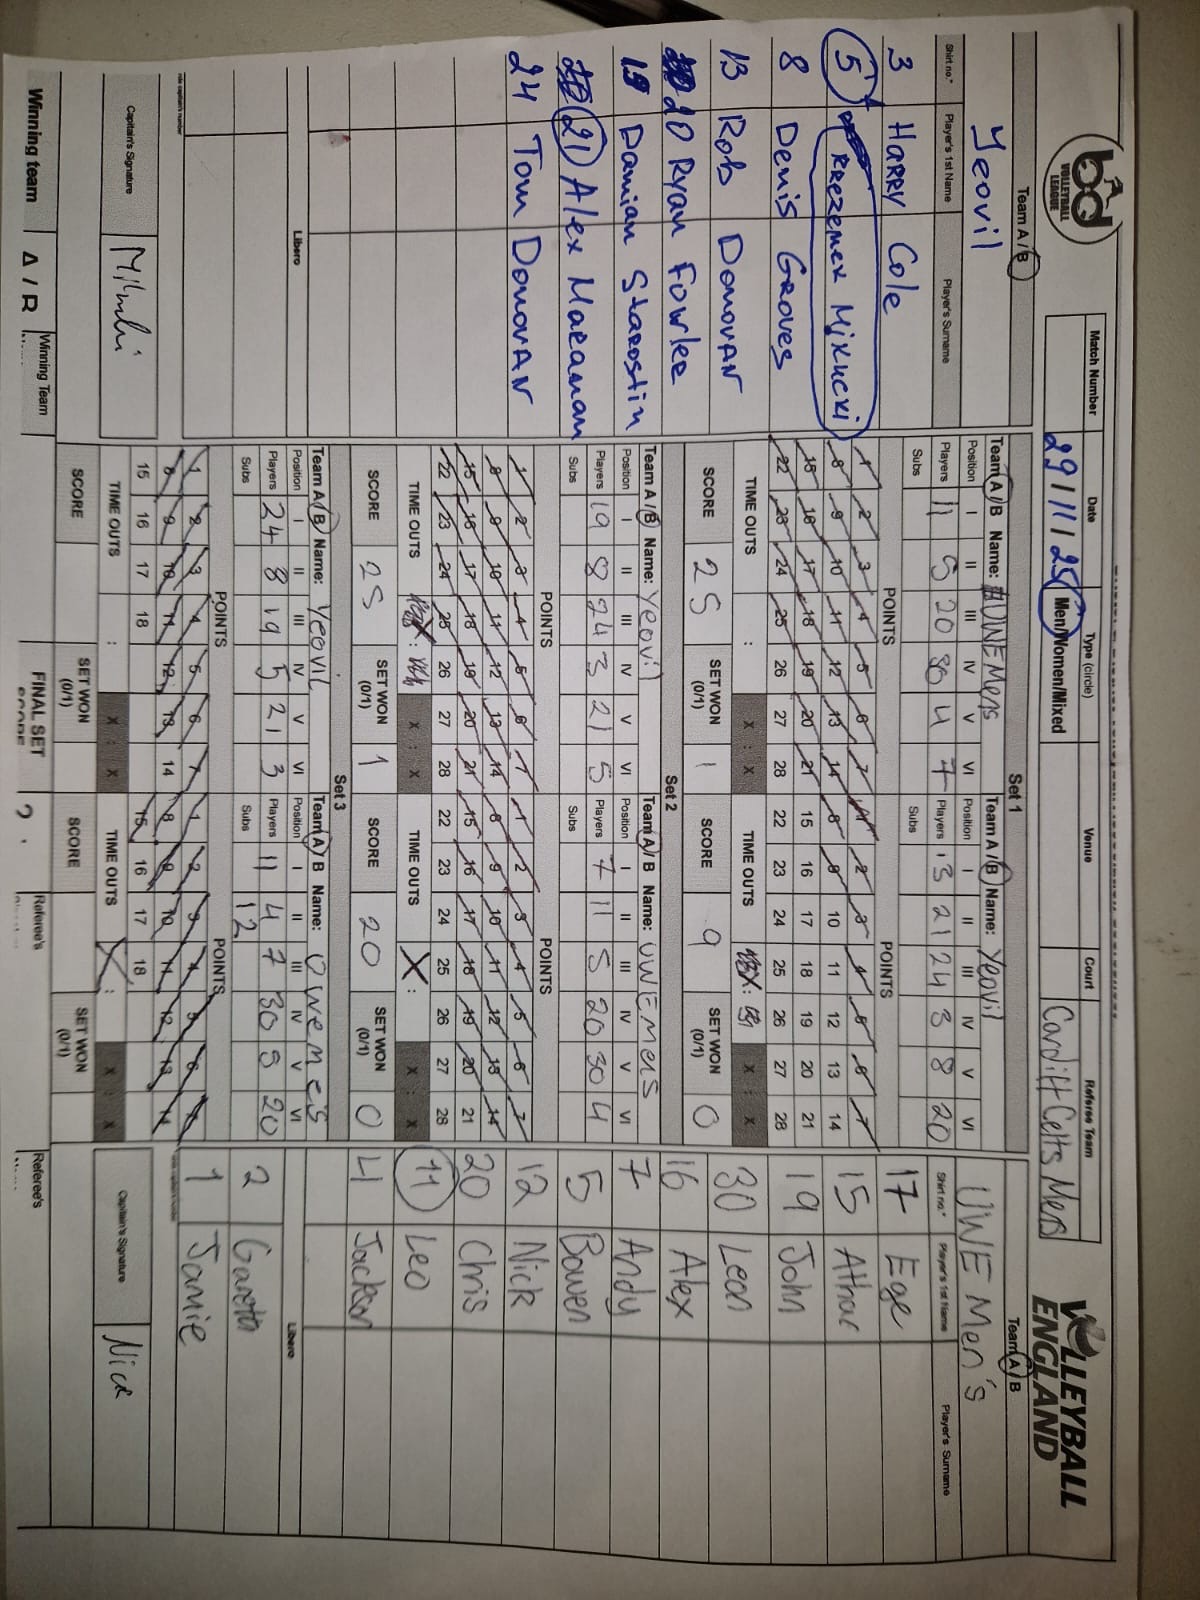 bd
VOLLEYBALL
LEAGUE
Match Number
Date
Type (circle)
Venue
Court
Referee Team
29/11/25
Men/Women/Mixed
Cardiff Celts Mens
VOLLEYBALL
ENGLAND
Team A / B
Yeovil
Shirt no.*
Player's 1st Name
Player's Surname
3 HARRY Cole
5 KRZEZMEK MIKUCKI
8 DENIS GROVES
13 Rob DONOVAN
20 Ryan Fowler
19 Damian Starostin
21 Alex
24 Tom DONOVAN
Libero
Captain's Signature
Winning team A /
Winning Team
Set 1
Team A / B Name: UWE Mens
Position I II III IV V VI
Players 11 5 20 30 4 7
Subs
POINTS
1 2 3 4 5 6 7
8 9 10 11 12 13 14
15 16 17 18 19 20 21
22 23 24 25 26 27 28
TIME OUTS : X : X
SCORE 25 SET WON (0/1) 1
Team A / B Name: Yeovil
Position I II III IV V VI
Players 13 21 24 3 8 20
Subs
POINTS
1 2 3 4 5 6 7
8 9 10 11 12 13 14
15 16 17 18 19 20 21
22 23 24 25 26 27 28
TIME OUTS : X : X
SCORE 9 SET WON (0/1) 0
Set 2
Team A / B Name: Yeovil
Position I II III IV V VI
Players 19 8 24 3 21 5
Subs
POINTS
1 2 3 4 5 6 7
8 9 10 11 12 13 14
15 16 17 18 19 20 21
22 23 24 25 26 27 28
TIME OUTS : X : X
SCORE 25 SET WON (0/1) 1
Team A / B Name: UWE Mens
Position I II III IV V VI
Players 7 11 5 20 30 4
Subs
POINTS
1 2 3 4 5 6 7
8 9 10 11 12 13 14
15 16 17 18 19 20 21
22 23 24 25 26 27 28
TIME OUTS X : X : X
SCORE 20 SET WON (0/1) 0
Set 3
Team A / B Name: Yeovil
Position I II III IV V VI
Players 24 8 19 5 21 3
Subs
POINTS
1 2 3 4 5 6 7
8 9 10 11 12 13 14
15 16 17 18
TIME OUTS : X : X
SCORE SET WON (0/1)
Team A / B Name: Uwe mens
Position I II III IV V VI
Players 11 4 7 30 5 20
Subs 12
POINTS
1 2 3 4 5 6 7
8 9 10 11 12 13 14
15 16 17 18
TIME OUTS X : X : X
SCORE SET WON (0/1)
FINAL SET
Referee's
Referee's
Team A / B
UWE Men's
Shirt no.*
Player's 1st Name
Player's Surname
17 Ege
15 Athar
19 John
30 Leon
16 Alex
7 Andy
5 Bowen
12 Nick
20 Chris
11 Leo
4 Jackson
Libero
2 Gareth
1 Jamie
Captain's Signature
Nick